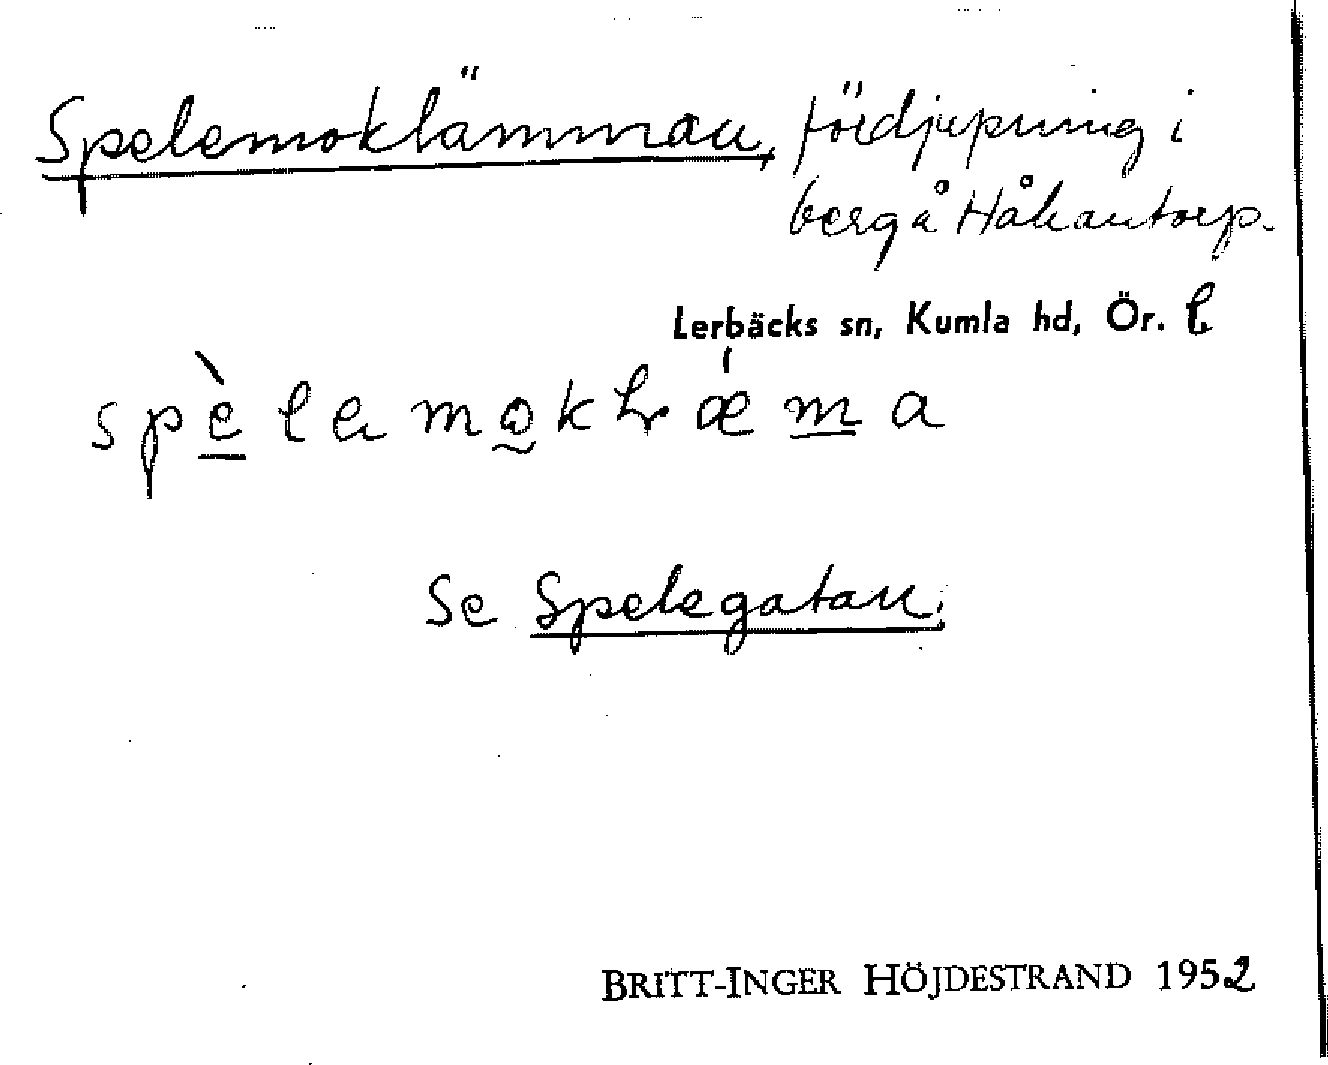 Spelemoklämman, fördjupning i
berg å Håkantorp.
Lerbäcks sn, Kumla hd, Ör. l
Se Spelegatan.
BRITT-INGER HÖJDESTRAND 1952